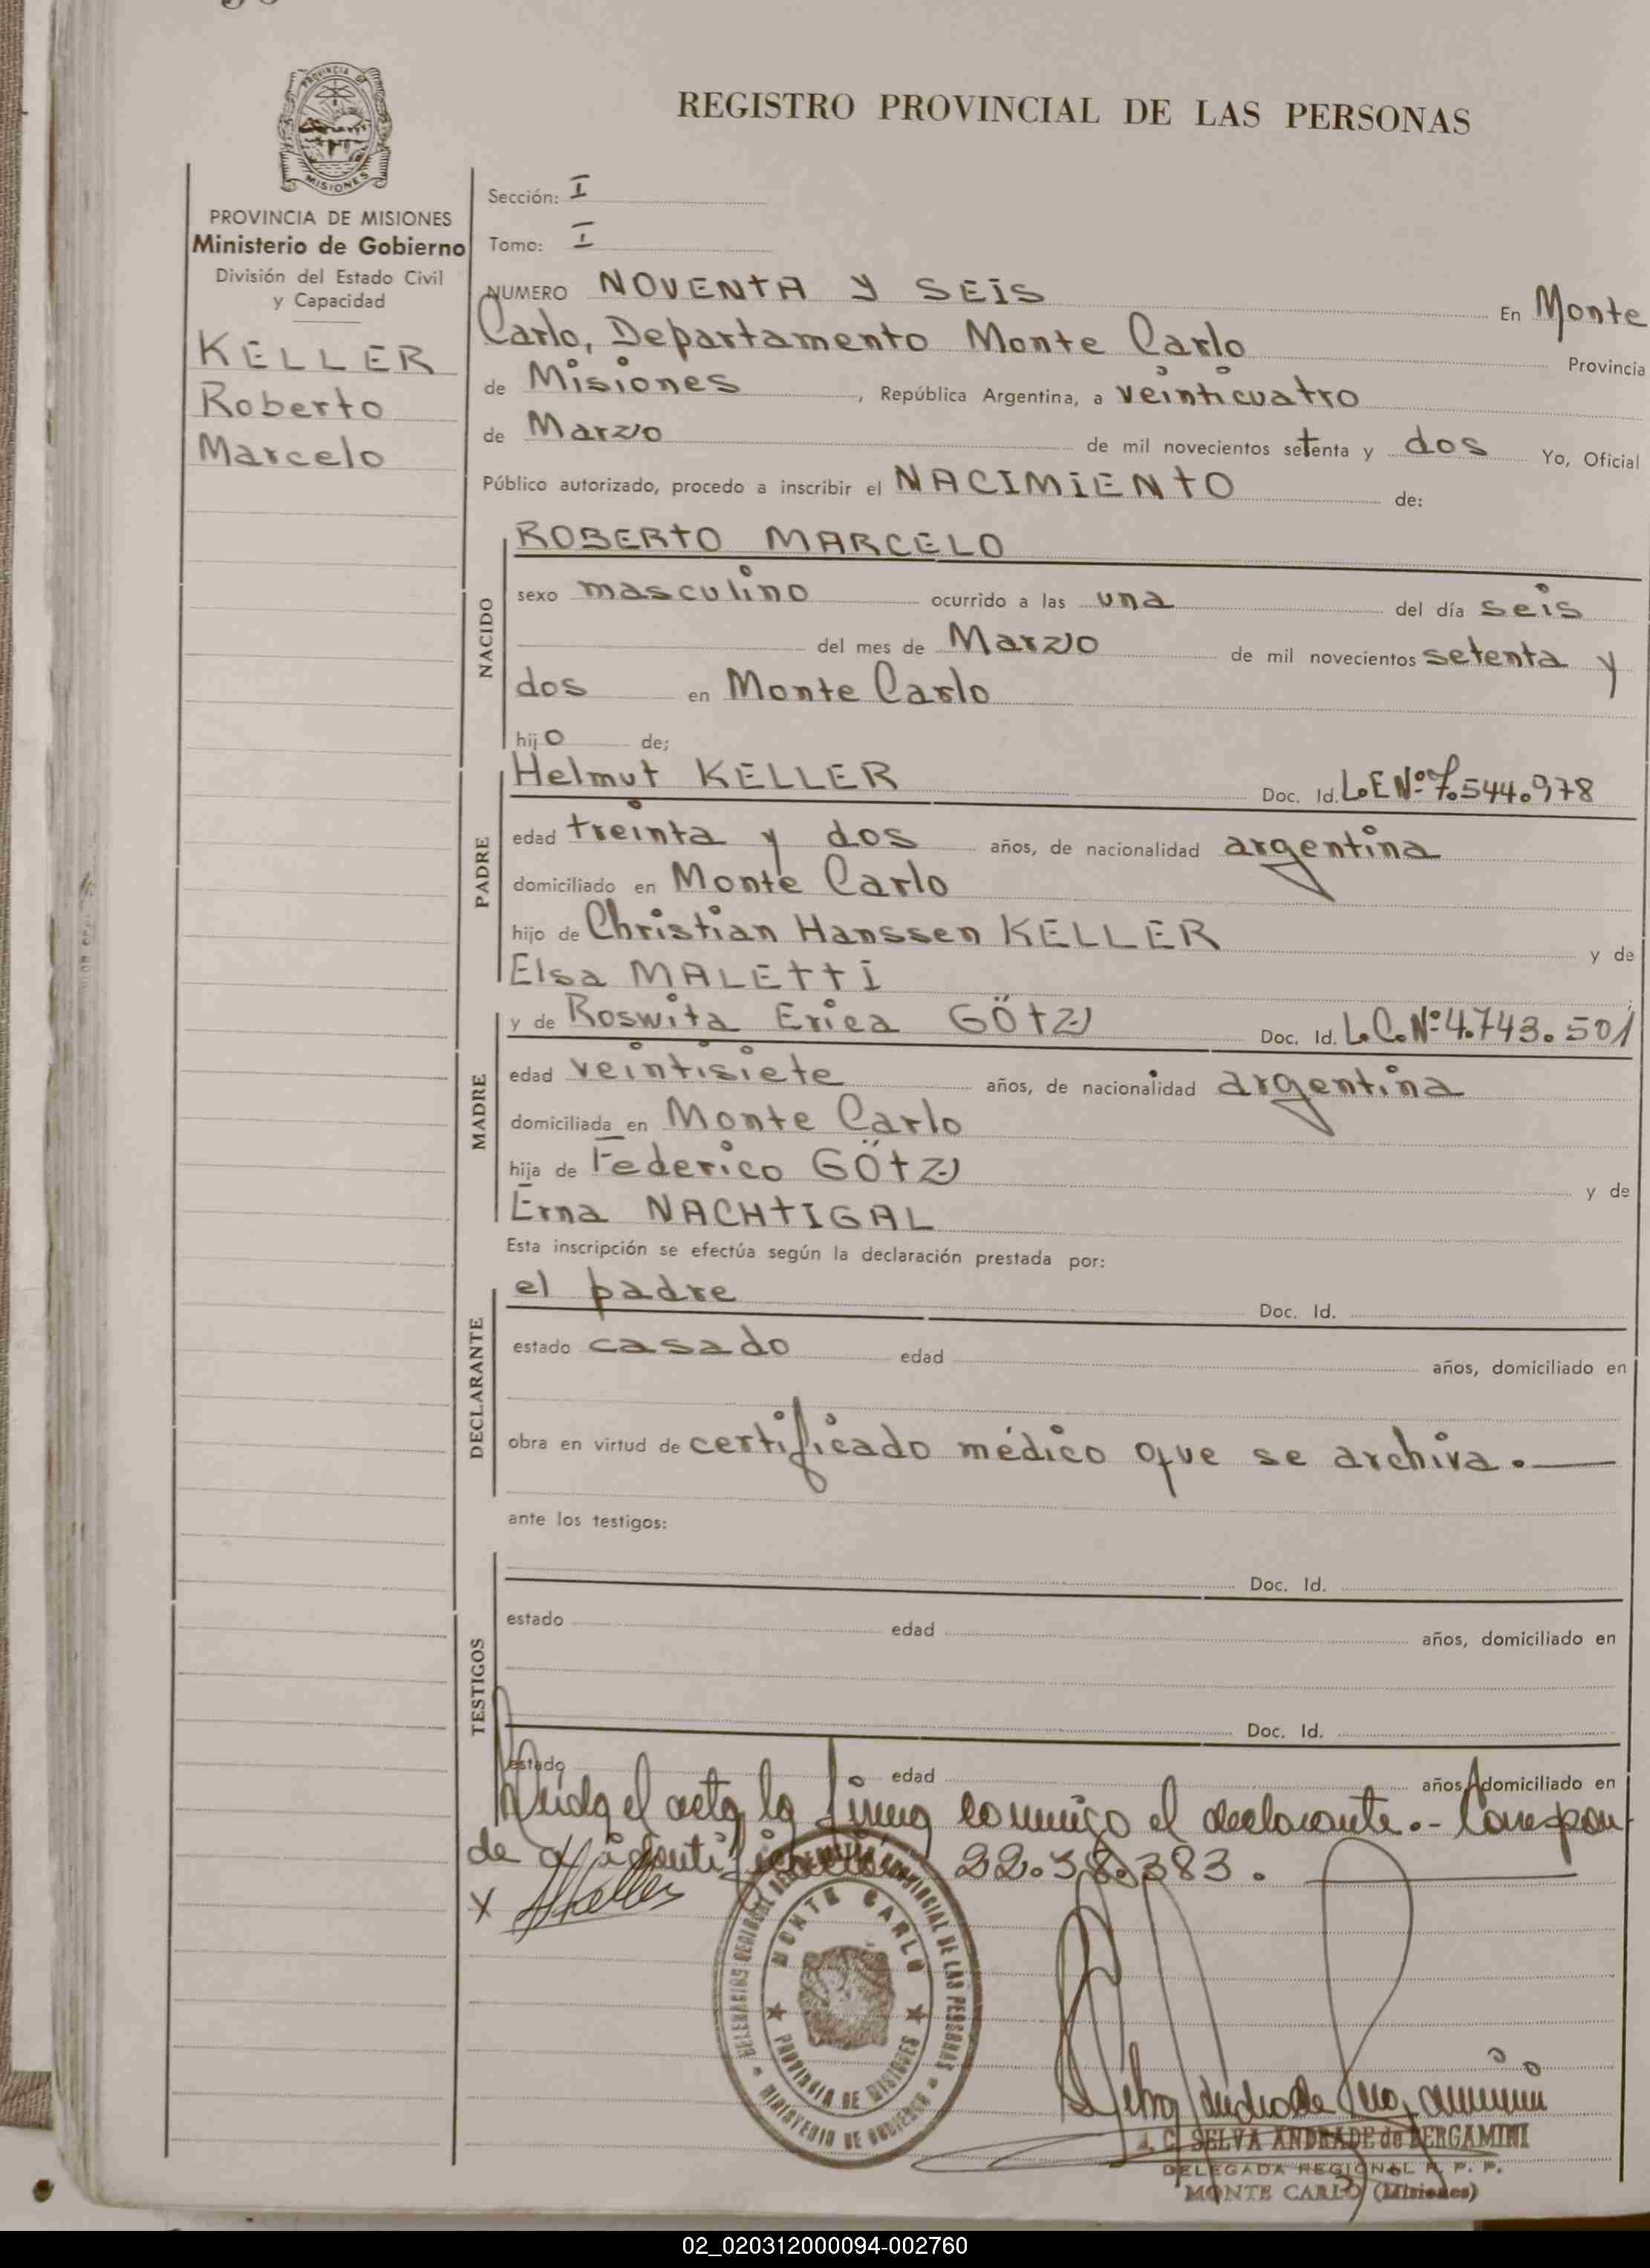 REGISTRO PROVINCIAL DE LAS PERSONAS
PROVINCIA DE MISIONES
PROVINCIA DE MISIONES
Ministerio de Gobierno
División del Estado Civil
y Capacidad
KELLER
Roberto
Marcelo
Sección: I
Tomo: I
NUMERO NOVENTA y SEIS En Monte
Carlo, Departamento Monte Carlo Provincia
de Misiones, República Argentina, a veinticuatro
de Marzo de mil novecientos setenta y dos Yo, Oficial
Público autorizado, procedo a inscribir el NACIMIENTO de:
NACIDO
ROBERTO MARCELO
sexo masculino ocurrido a las una del día seis
del mes de Marzo de mil novecientos setenta y
dos en Monte Carlo
hijo de;
PADRE
Helmut KELLER Doc. Id. L.E Nº 7.544.978
edad treinta y dos años, de nacionalidad argentina
domiciliado en Monte Carlo
hijo de Christian Hanssen KELLER y de
Elsa MALETTI
MADRE
y de Roswita Erica GÖTZ Doc. Id. L.C. Nº 4.743.501
edad veintisiete años, de nacionalidad argentina
domiciliada en Monte Carlo
hija de Federico GÖTZ y de
Erna NACHTIGAL
Esta inscripción se efectúa según la declaración prestada por:
DECLARANTE
el padre Doc. Id.
estado casado edad años, domiciliado en
obra en virtud de certificado médico que se archiva.
ante los testigos:
TESTIGOS
Doc. Id.
estado edad años, domiciliado en
Doc. Id.
estado edad años, domiciliado en
el acta la firma conmigo el declarante.- Correspon
de
X HKeller
MONTE CARLO
PROVINCIA DE MISIONES
MINISTERIO DE GOBIERNO
PROVINCIAL DE LAS PERSONAS
SELVA ANDRADE de BERGAMINI
DELEGADA REGIONAL R. P. P.
MONTE CARLO (Misiones)
02_020312000094-002760